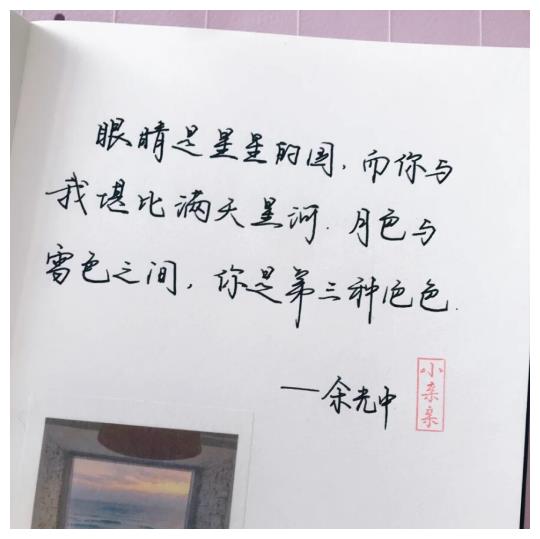 眼睛是星星的国，而你与
我堪比满天星河．月色与
雪色之间，你是第三种绝色．
—余光中
小亲亲